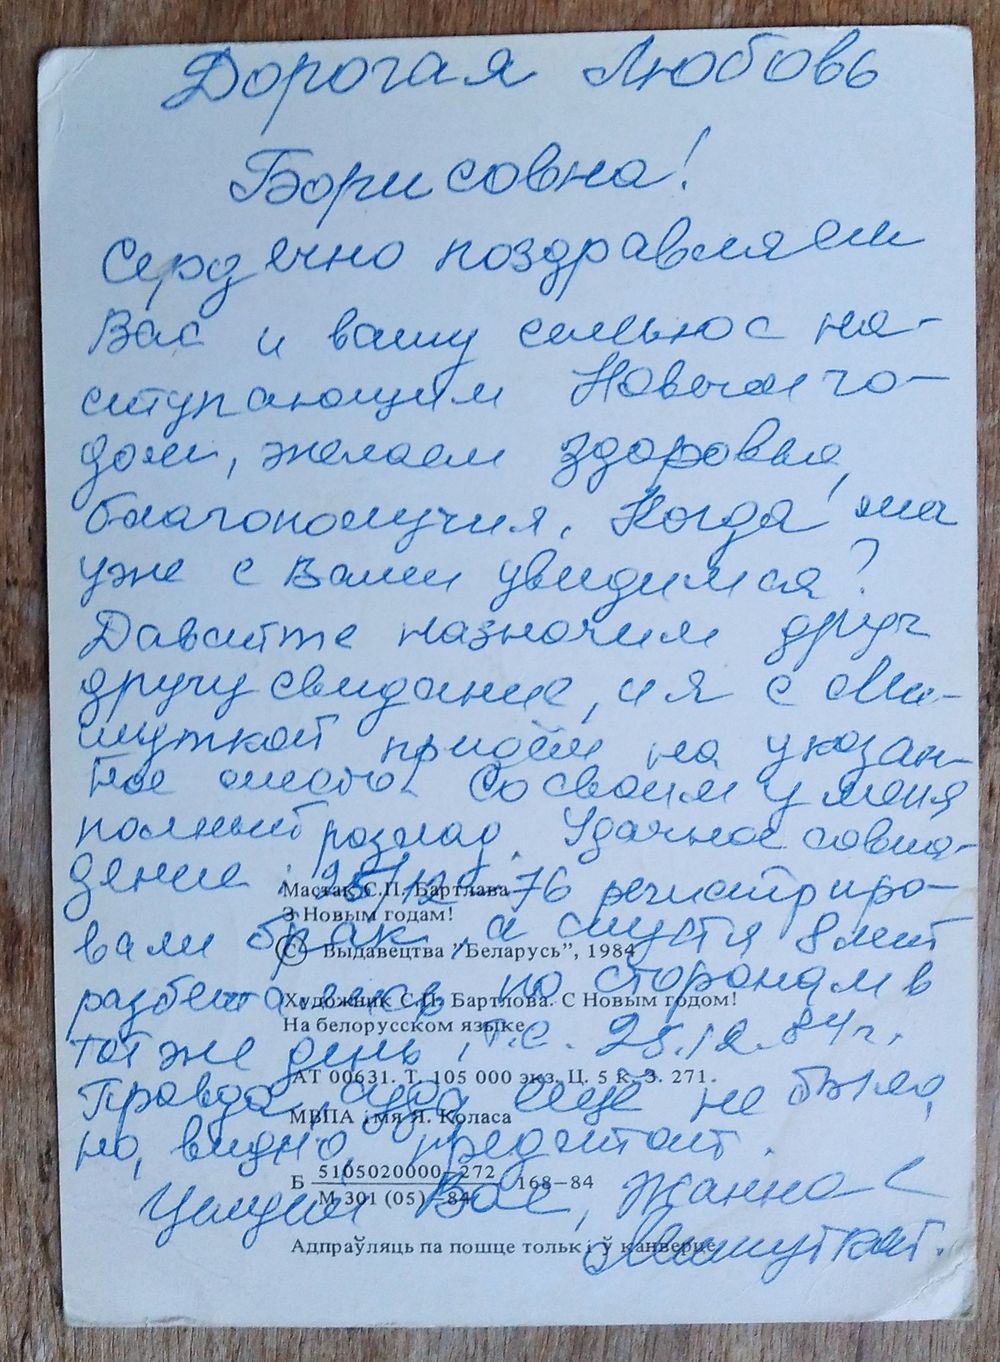 Дорогая Любовь
Борисовна!
Сердечно поздравляем
Вас и вашу семью с на-
ступающим Новым го-
дом, желаем здоровья,
благополучия. Когда мы
уже с Вами увидимся?
Давайте назначим друг
другу свидание, и я с Ми-
шуткой придём на указан-
ное место. Со своим у меня
полный разлад. Удачное совпа-
дение: 25/12-76 регистриро-
Мастак С.П. Бартлава
З Новым годам!
вали брак, а спустя 8 лет
© Выдавецтва "Беларусь", 1984
разбежались по сторонам в
Художник С.П. Бартлова. С Новым годом!
На белорусском языке
тот же день, т.е. 25.12.84 г.
АТ 00631. Т. 105 000 экз. Ц. 5 к. З. 271.
Правда, суда ещё не было,
МВПА імя Я. Коласа
но, видно, предстоит.
Б 5105020000-272 168-84
М 301 (05)-84
Целуем Вас, Жанна с
Адпраўляць па пошце толькі ў канверце
Мишуткой.